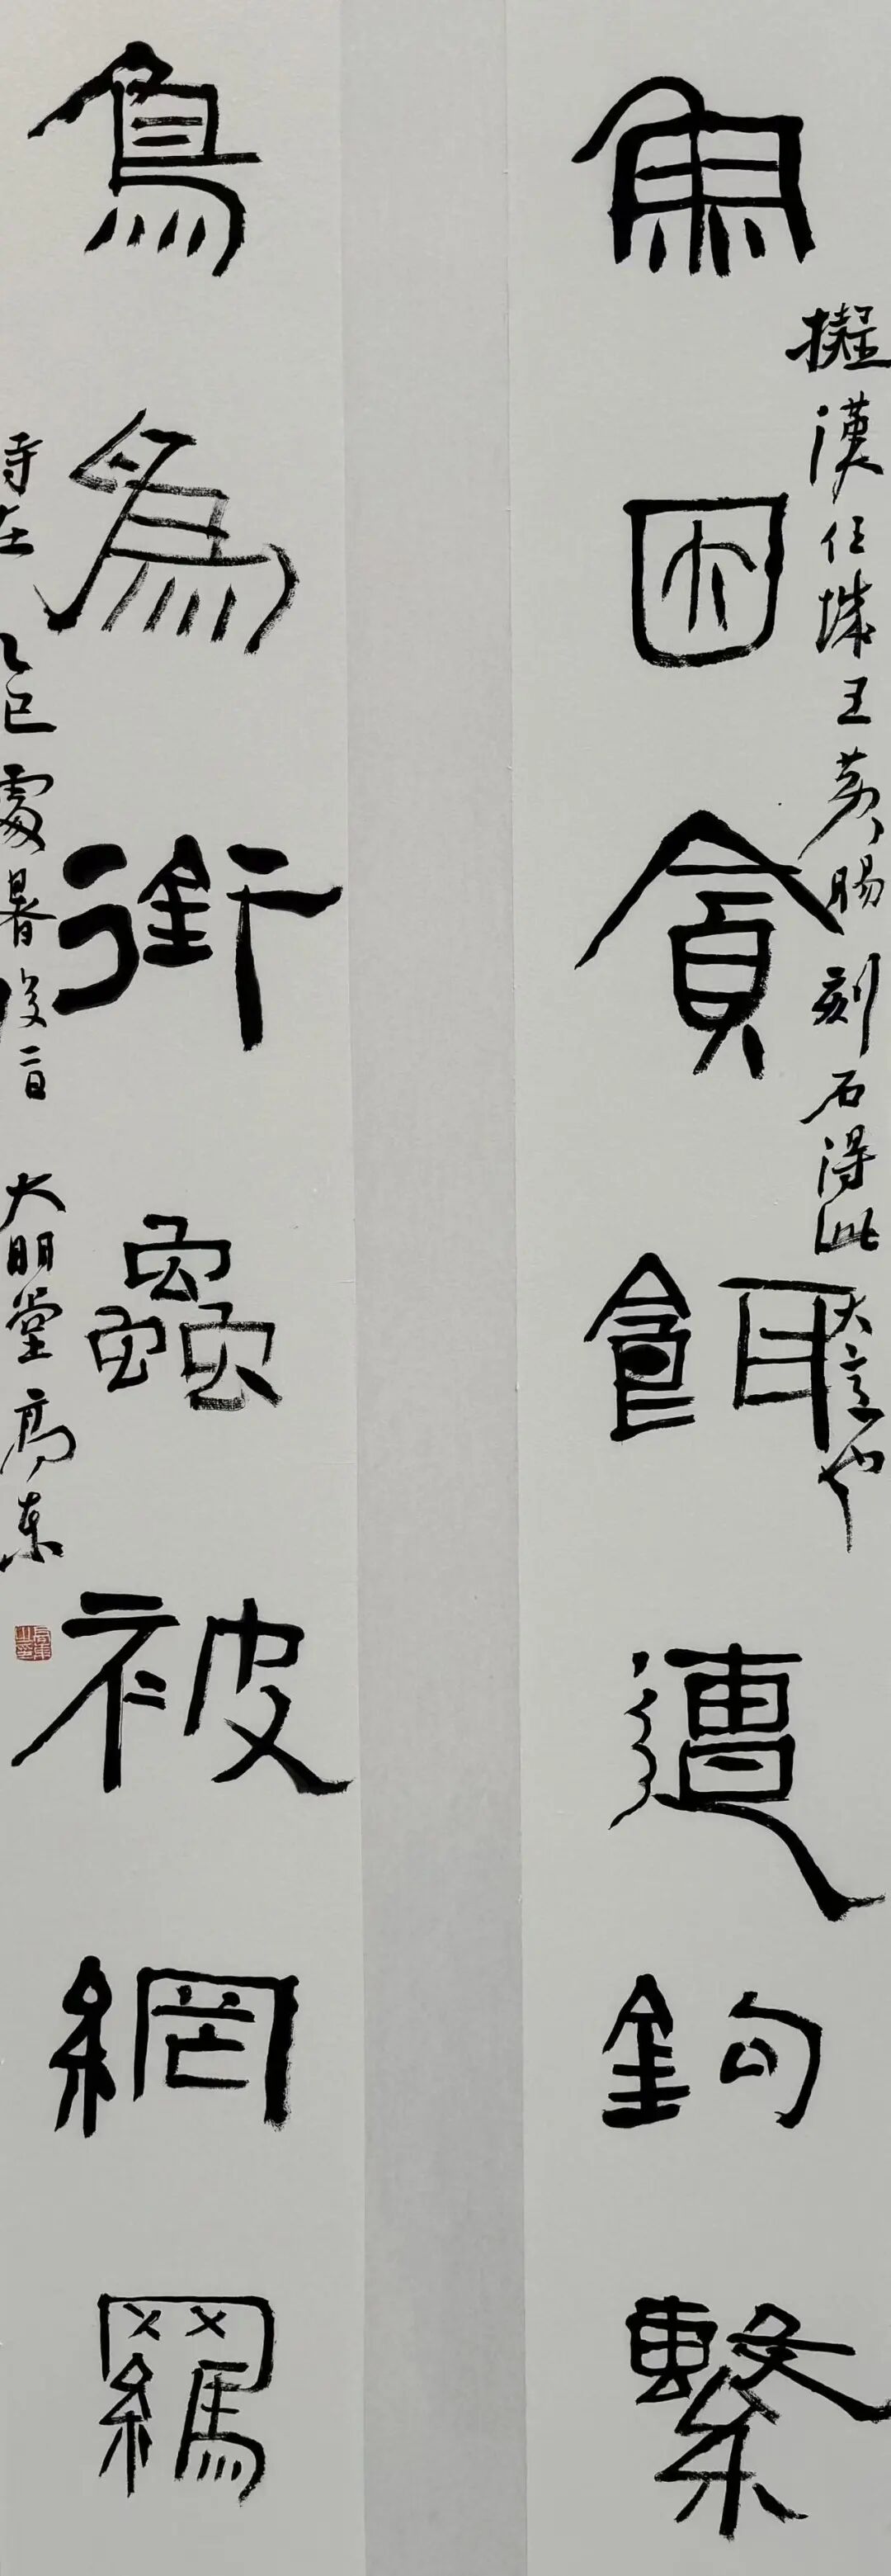 魚因貪餌遭鉤繫
擬漢任城王黃腸刻石得此大意也
鳥為銜蟲被網羈
時在乙巳處暑後二日 大明堂 高東